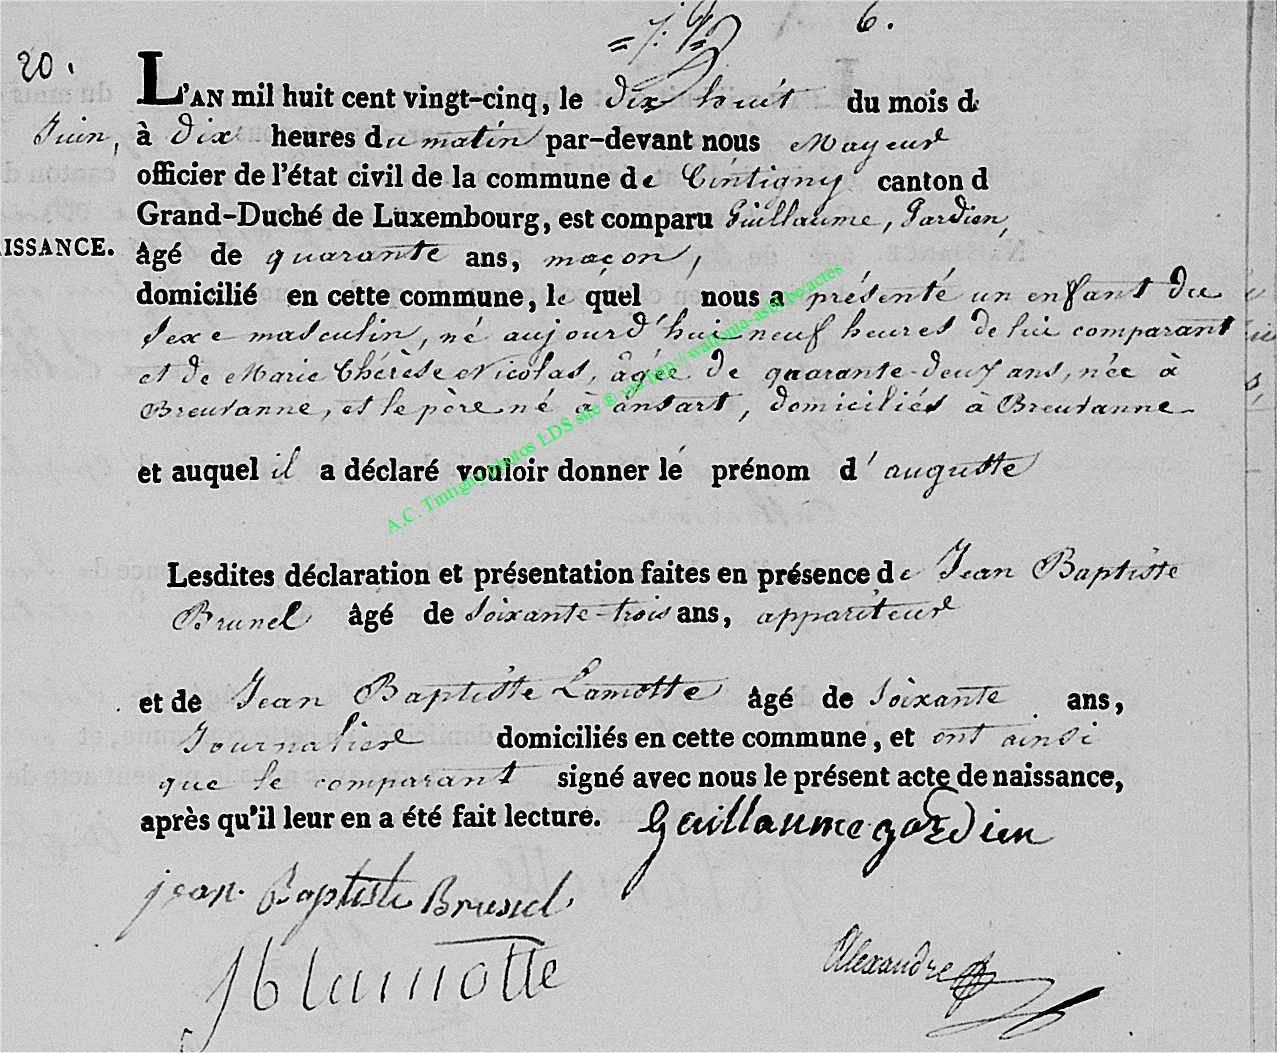 6.
20.
L'AN mil huit cent vingt-cinq, le dix huit du mois de
Juin, à dix heures du matin par-devant nous Mayeur
officier de l'état civil de la commune de Tintigny canton d
Grand-Duché de Luxembourg, est comparu Guillaume, Gardien,
AISSANCE. âgé de quarante ans, maçon,
domicilié en cette commune, le quel nous a présenté un enfant du
sexe masculin, né aujourd'hui neuf heures de lui comparant
et de Marie Thérèse Nicolas, âgée de quarante-deux ans, née à
Breuvanne, et le père né à ansart, domiciliés à Breuvanne.
et auquel il a déclaré vouloir donner le prénom d'auguste
Lesdites déclaration et présentation faites en présence de Jean Baptiste
Brunel âgé de soixante-trois ans, appariteur
et de Jean Baptiste Lamotte âgé de soixante ans,
Journalier domiciliés en cette commune, et ont ainsi
que le comparant signé avec nous le présent acte de naissance,
après qu'il leur en a été fait lecture. Guillaume gardien
jean Baptiste Brunel
JB lamotte Alexandre
A.C. Tintigny photos LDS site ® via http://wallonia-asbl.be/actes